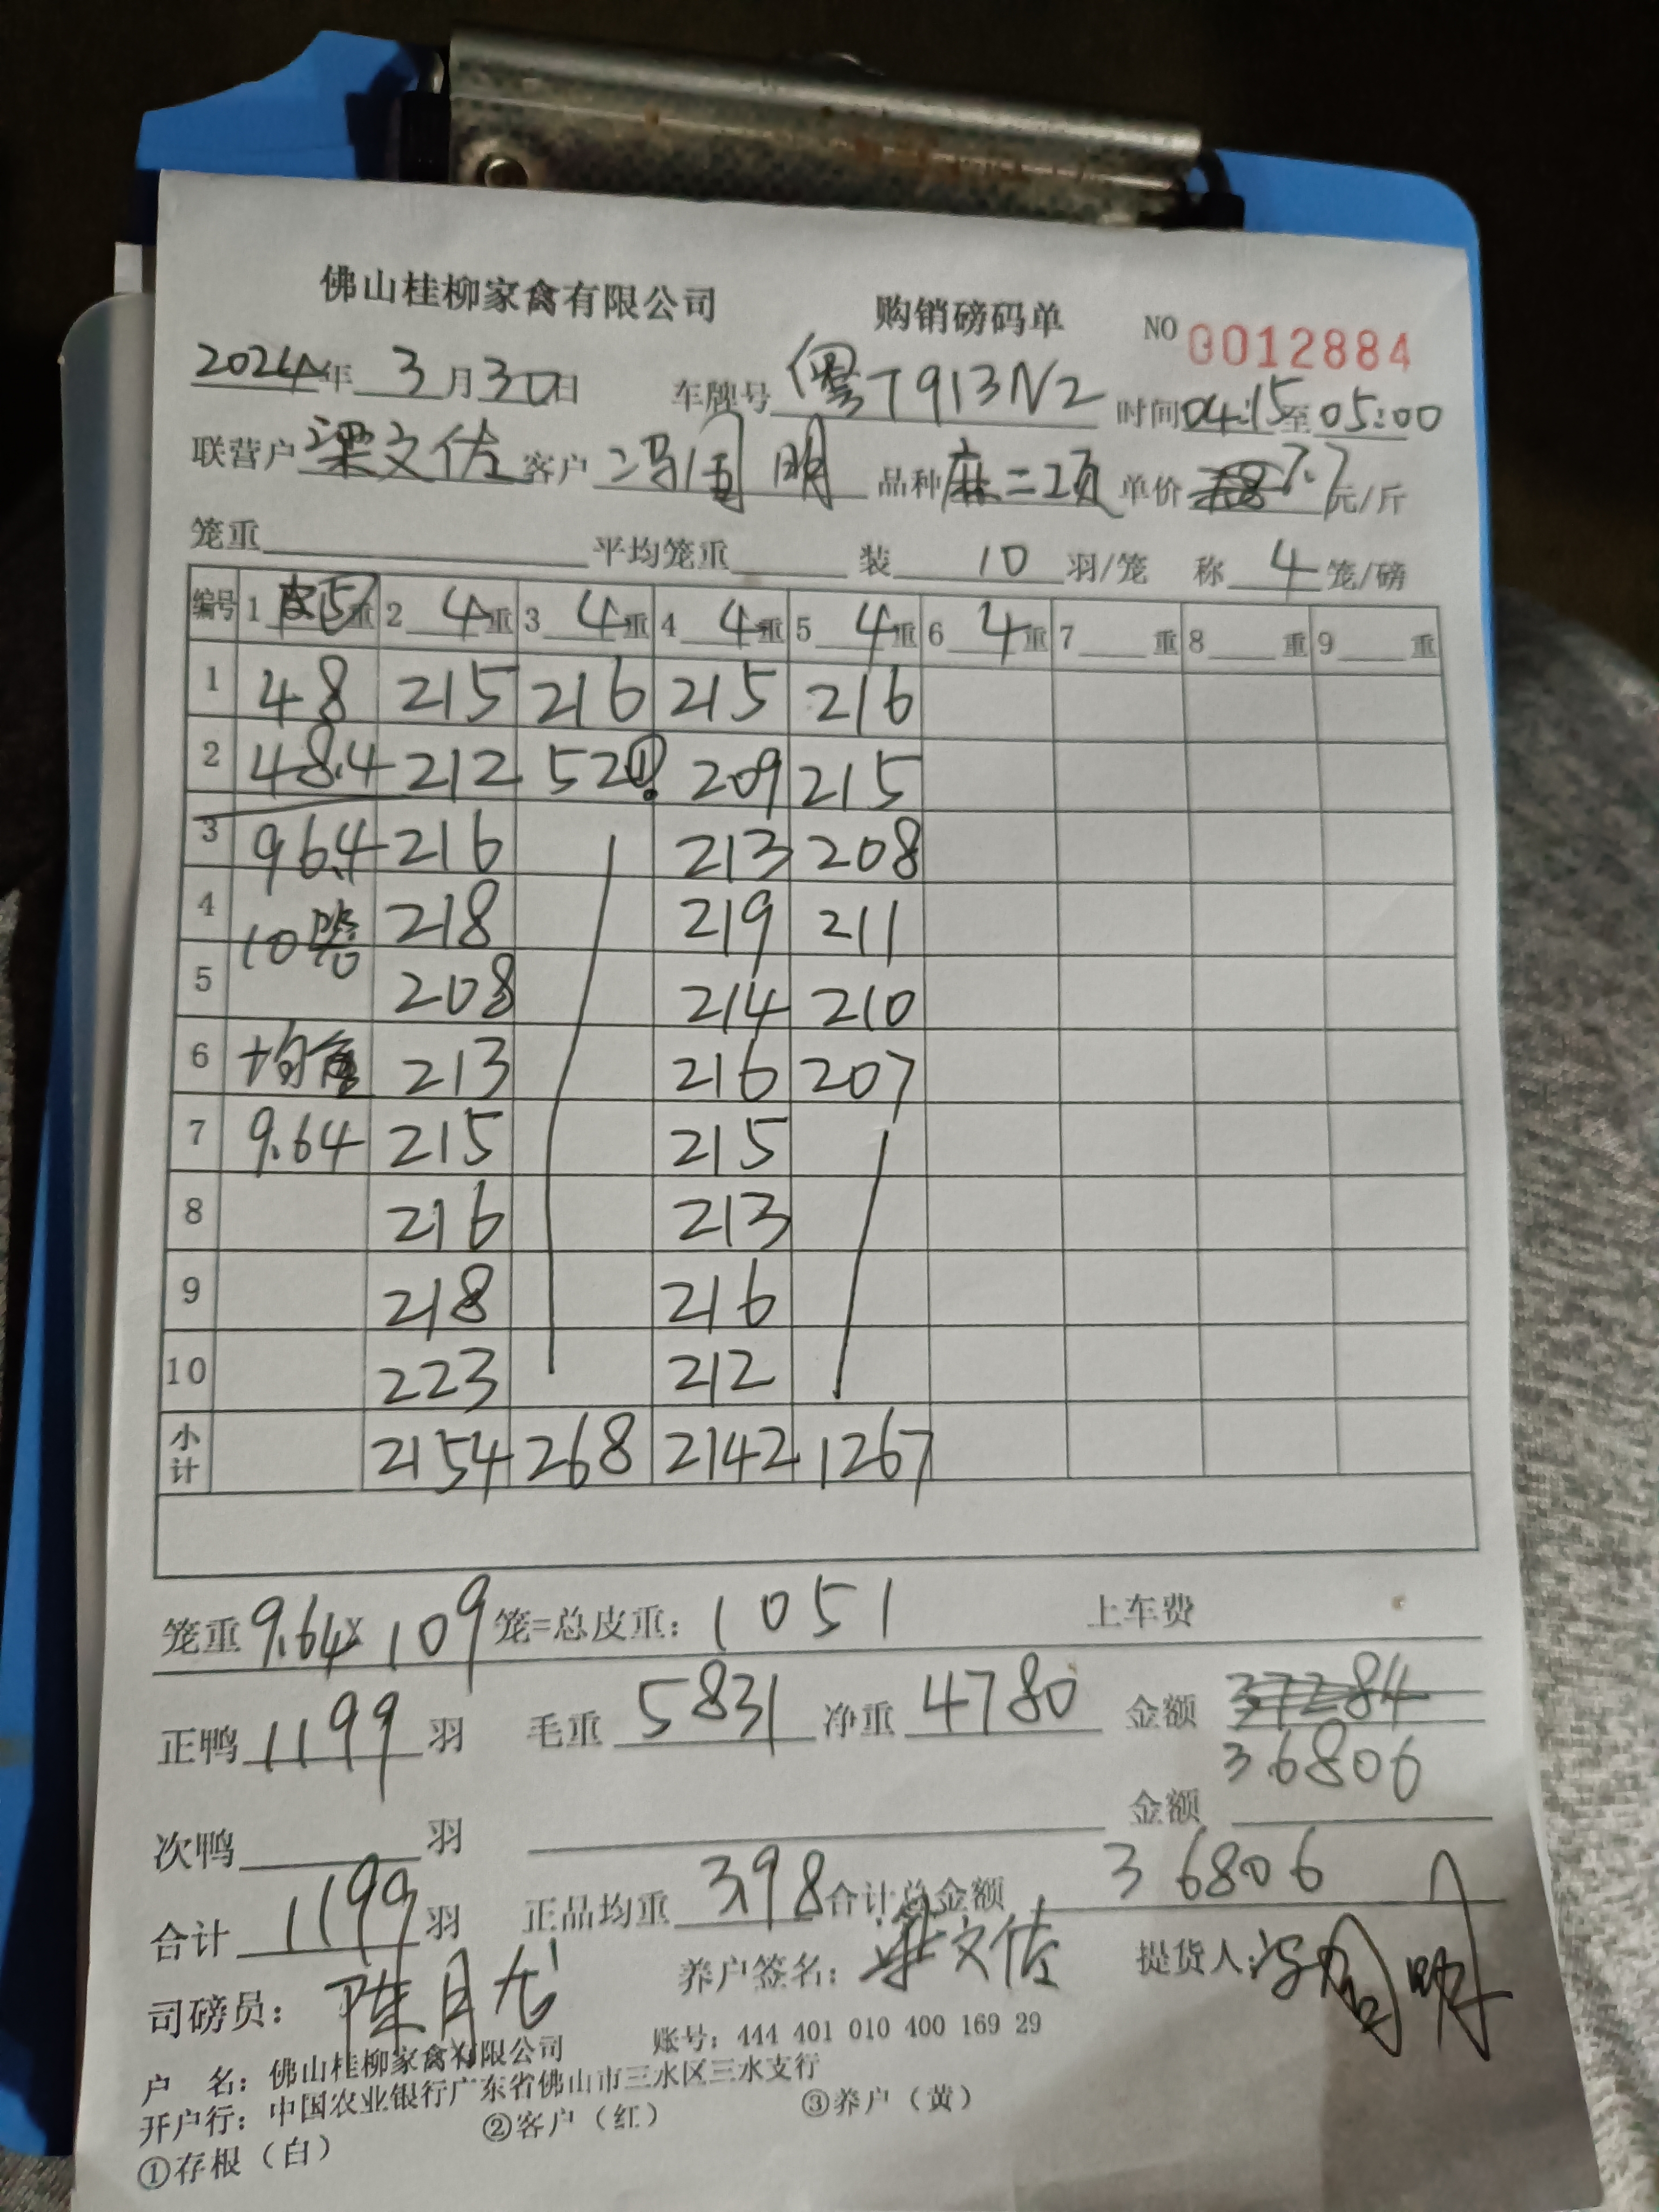 佛山桂柳家禽有限公司 购销磅码单 NO 0012884
2024年3月30日 车牌号 粤T913N2 时间04:15至05:00
联营户 梁文佐 客户 冯国明 品种 麻二项 单价 7.7元/斤
笼重 平均笼重 装 10 羽/笼 称 4 笼/磅
编号 1 重 2 4重 3 4重 4 4重 5 4重 6 4重 7 重 8 重 9 重
1 48 215 216 215 216
2 48.4 212 52 209 215
3 96.4 216 213 208
4 10笼 218 219 211
5 208 214 210
6 均 213 216 207
7 9.64 215 215
8 216 213
9 218 216
10 223 212
小计 2154 268 2142 1267
笼重 9.64x109 笼=总皮重: 1051 上车费
正鸭 1199 羽 毛重 5831 净重 4780 金额 37284
36806
次鸭 羽 金额
合计 1199 羽 正品均重 3.98 合计总金额 36806
司磅员: 陈月 养户签名: 梁文佐 提货人: 冯国明
户 名: 佛山桂柳家禽有限公司 账号: 444 401 010 400 169 29
开户行: 中国农业银行广东省佛山市三水区三水支行
①存根（白） ②客户（红） ③养户（黄）